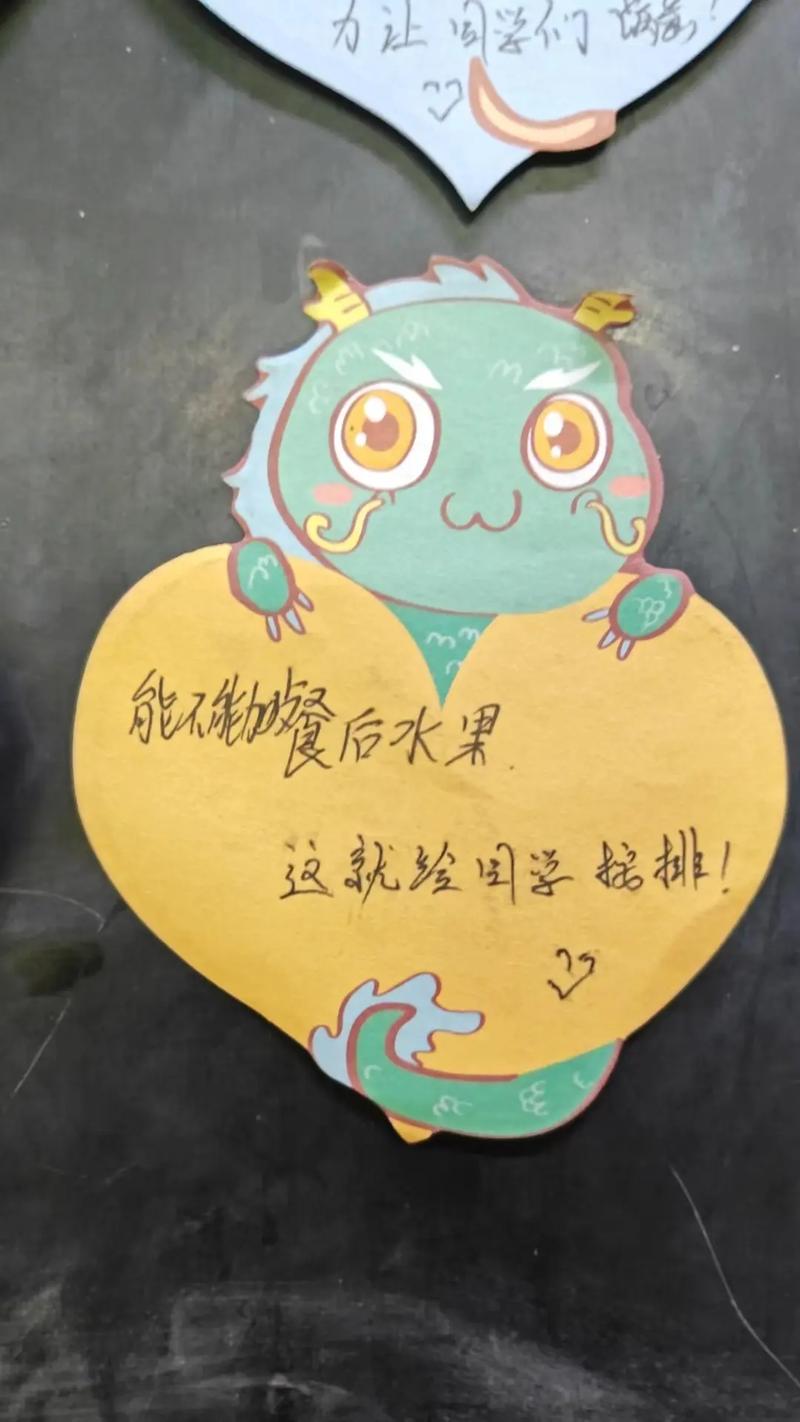 力让同学们满意！
能不能加点餐后水果.
这就给同学按排！